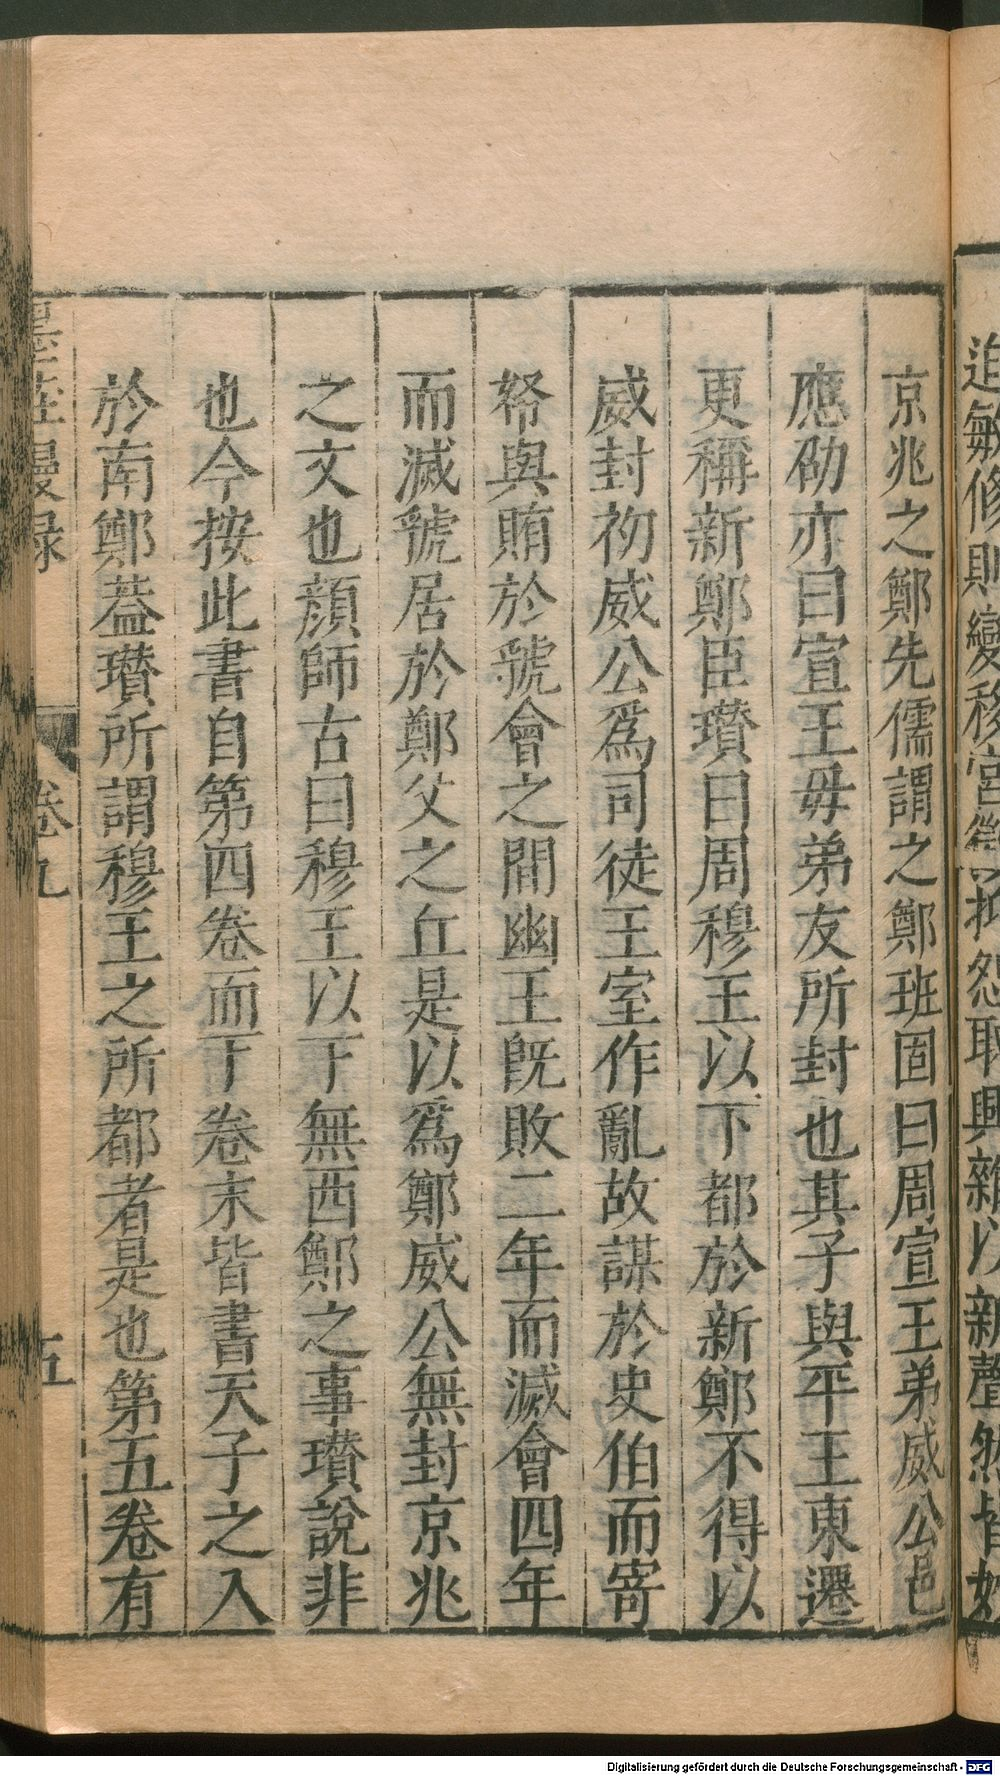 京兆之鄭先儒謂之鄭班固曰周宣王弟威公邑
應劭亦曰宣王毋弟友所封也其子與平王東遷
更稱新鄭臣瓚曰周穆王以下都於新鄭不得以
威封初威公爲司徒王室作亂故謀於史伯而寄
帑與賄於虢會之間幽王旣敗二年而滅會四年
而滅虢居於鄭父之丘是以爲鄭威公無封京兆
之文也顔師古曰穆王以下無西鄭之事瓚說非
也今按此書自第四卷而下卷末皆書天子之入
於南鄭葢瓚所謂穆王之所都者是也第五卷有
墨莊漫录 卷九 五
Digitalisierung gefördert durch die Deutsche Forschungsgemeinschaft - DFG